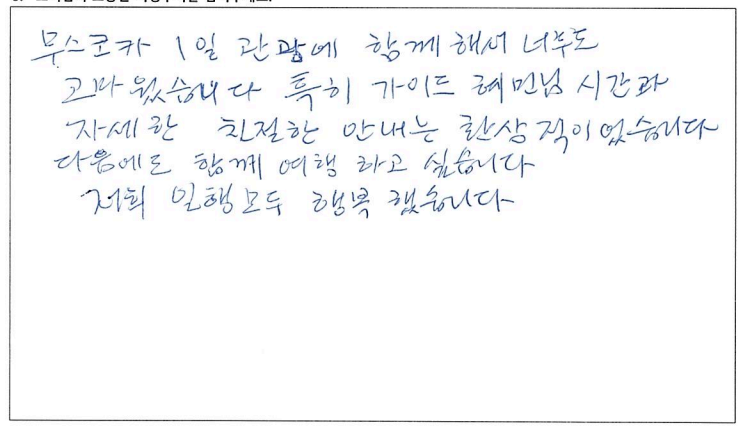 무스코카 1일 관광에 함께해서 너무도
고마웠습니다 특히 가이드 혜민님 시간과
자세한 친절한 안내는 환상적이었습니다
다음에도 함께 여행 하고 싶습니다
저희 일행모두 행복 했습니다